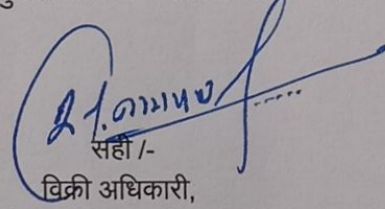 सही /-
विक्री अधिकारी,